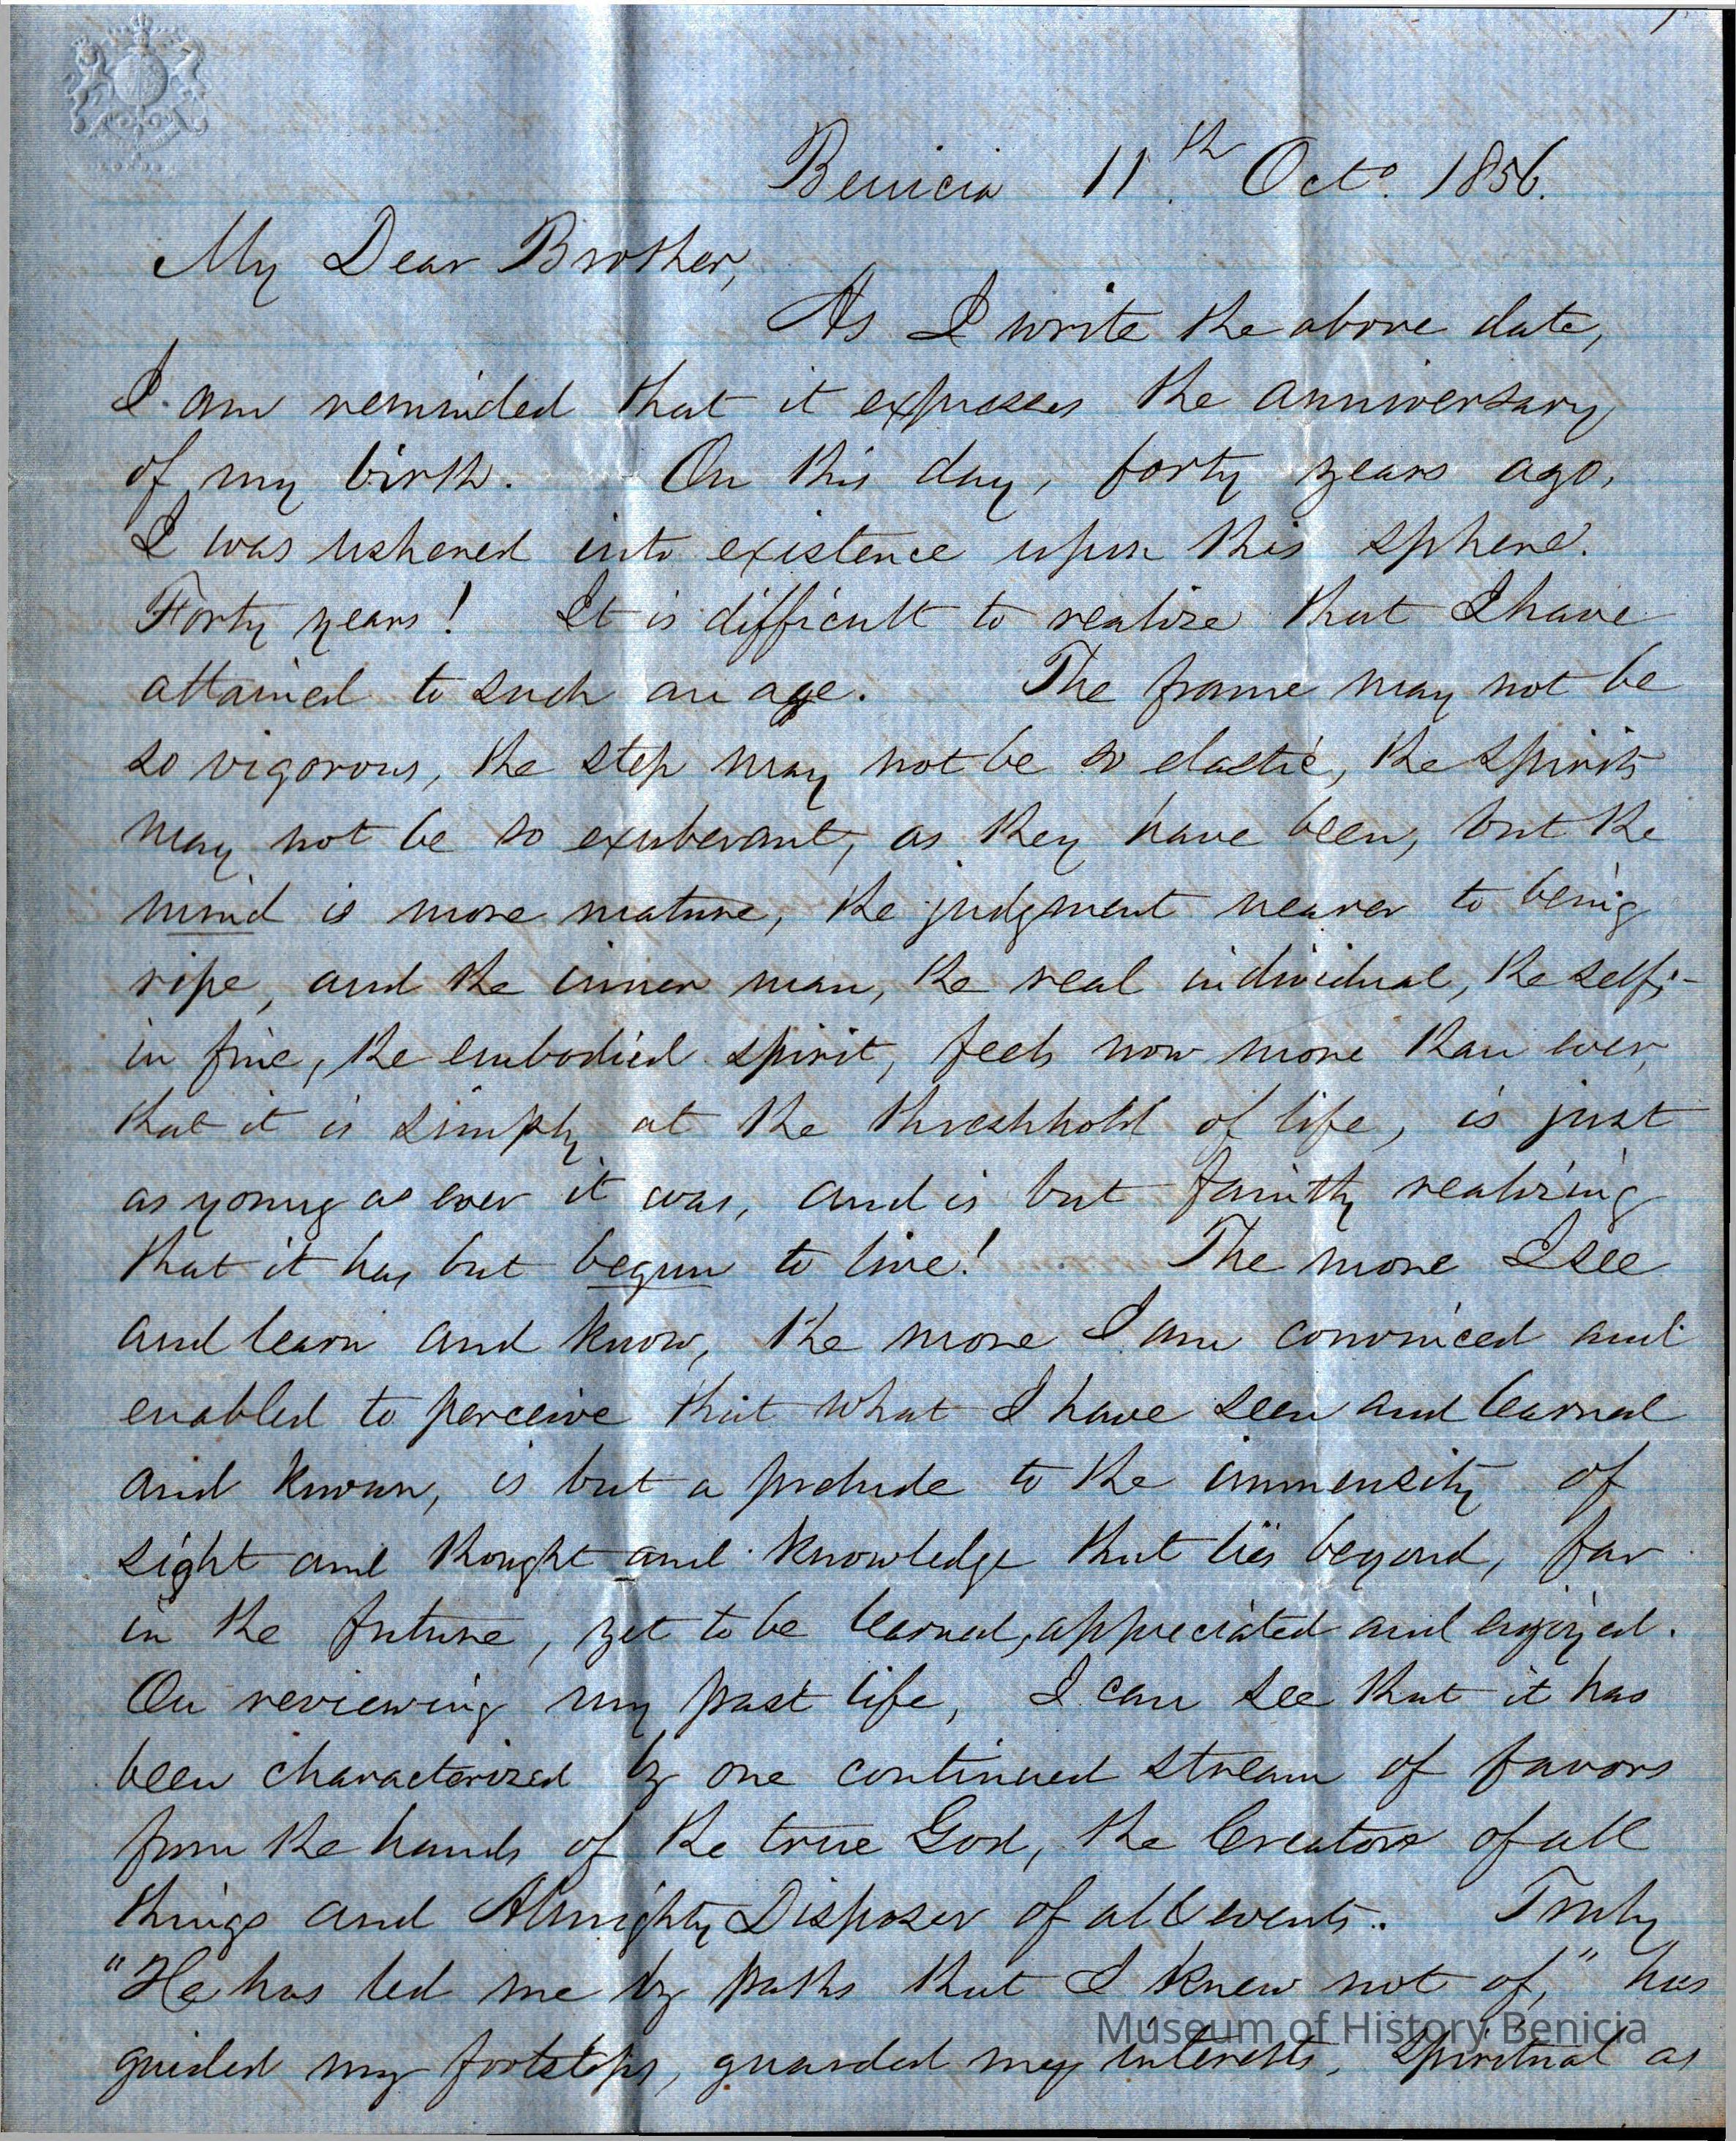 1.
Benicia 11th. Octo. 1856.
My Dear Brother,
As I write the above date,
I am reminded that it expresses the anniversary
of my birth. On this day, forty years ago,
I was ushered into existence upon this sphere.
Forty years! It is difficult to realize that I have
attained to such an age. The frame may not be
so vigorous, the step may not be so elastic, the spirits
may not be so exuberant, as they have been, but the
mind is more mature, the judgment nearer to being
ripe, and the inner man, the real individual, the self;-
in fine, the embodied spirit, feels now more than ever,
that it is simply at the threshhold of life, is just
as young as ever it was, and is but faintly realizing
that it has but begun to live! The more I see
and learn and know, the more I am convinced and
enabled to perceive that what I have seen and learned
and known, is but a prelude to the immensity of
sight and thought and knowledge that lies beyond, far
in the future, yet to be learned, appreciated and enjoyed.
On reviewing my past life, I can see that it has
been characterized by one continued stream of favors
from the hands of the true God, the Creator of all
things and Almighty Disposer of all events. Truly
"He has led me by paths that I knew not of," has
guided my footsteps, guarded my interests, spiritual as
Museum of History Benicia